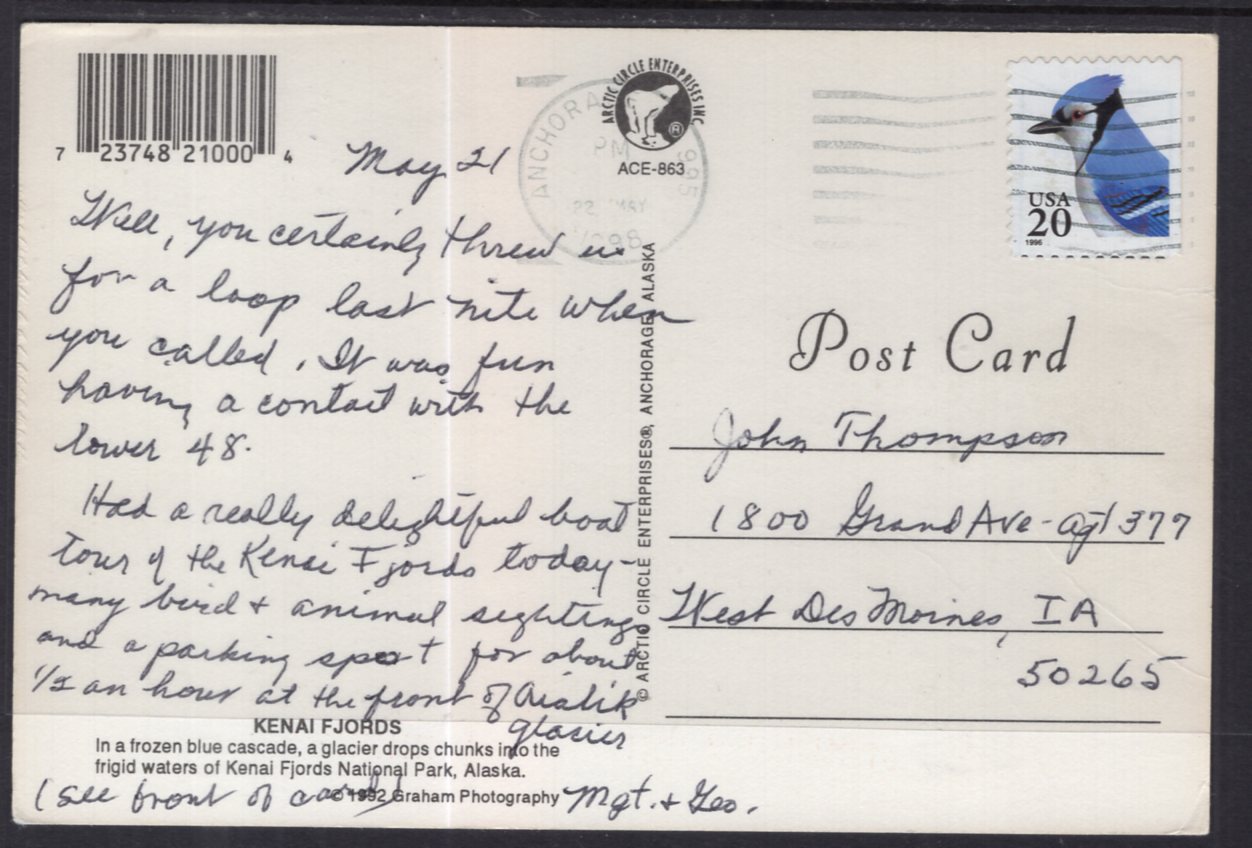 7 23748 21000 4
ARCTIC CIRCLE ENTERPRISES INC
®
ACE-863
ANCHORA 995
PM
22 MAY
1998
USA
20
1996
May 21
Well, you certainly threw us
for a loop last nite when
you called. It was fun
having a contact with the
lower 48.
Had a really delightful boat
tour of the Kenai Fjords today -
many bird + animal sightings
and a parking spot for about
1/2 an hour at the front of Aialik
glacier
(see front of card)
Mgt. + Geo.
KENAI FJORDS
In a frozen blue cascade, a glacier drops chunks into the
frigid waters of Kenai Fjords National Park, Alaska.
© 1992 Graham Photography
© ARCTIC CIRCLE ENTERPRISES®, ANCHORAGE, ALASKA
Post Card
John Thompson
1800 Grand Ave - apt 377
West Des Moines, IA
50265